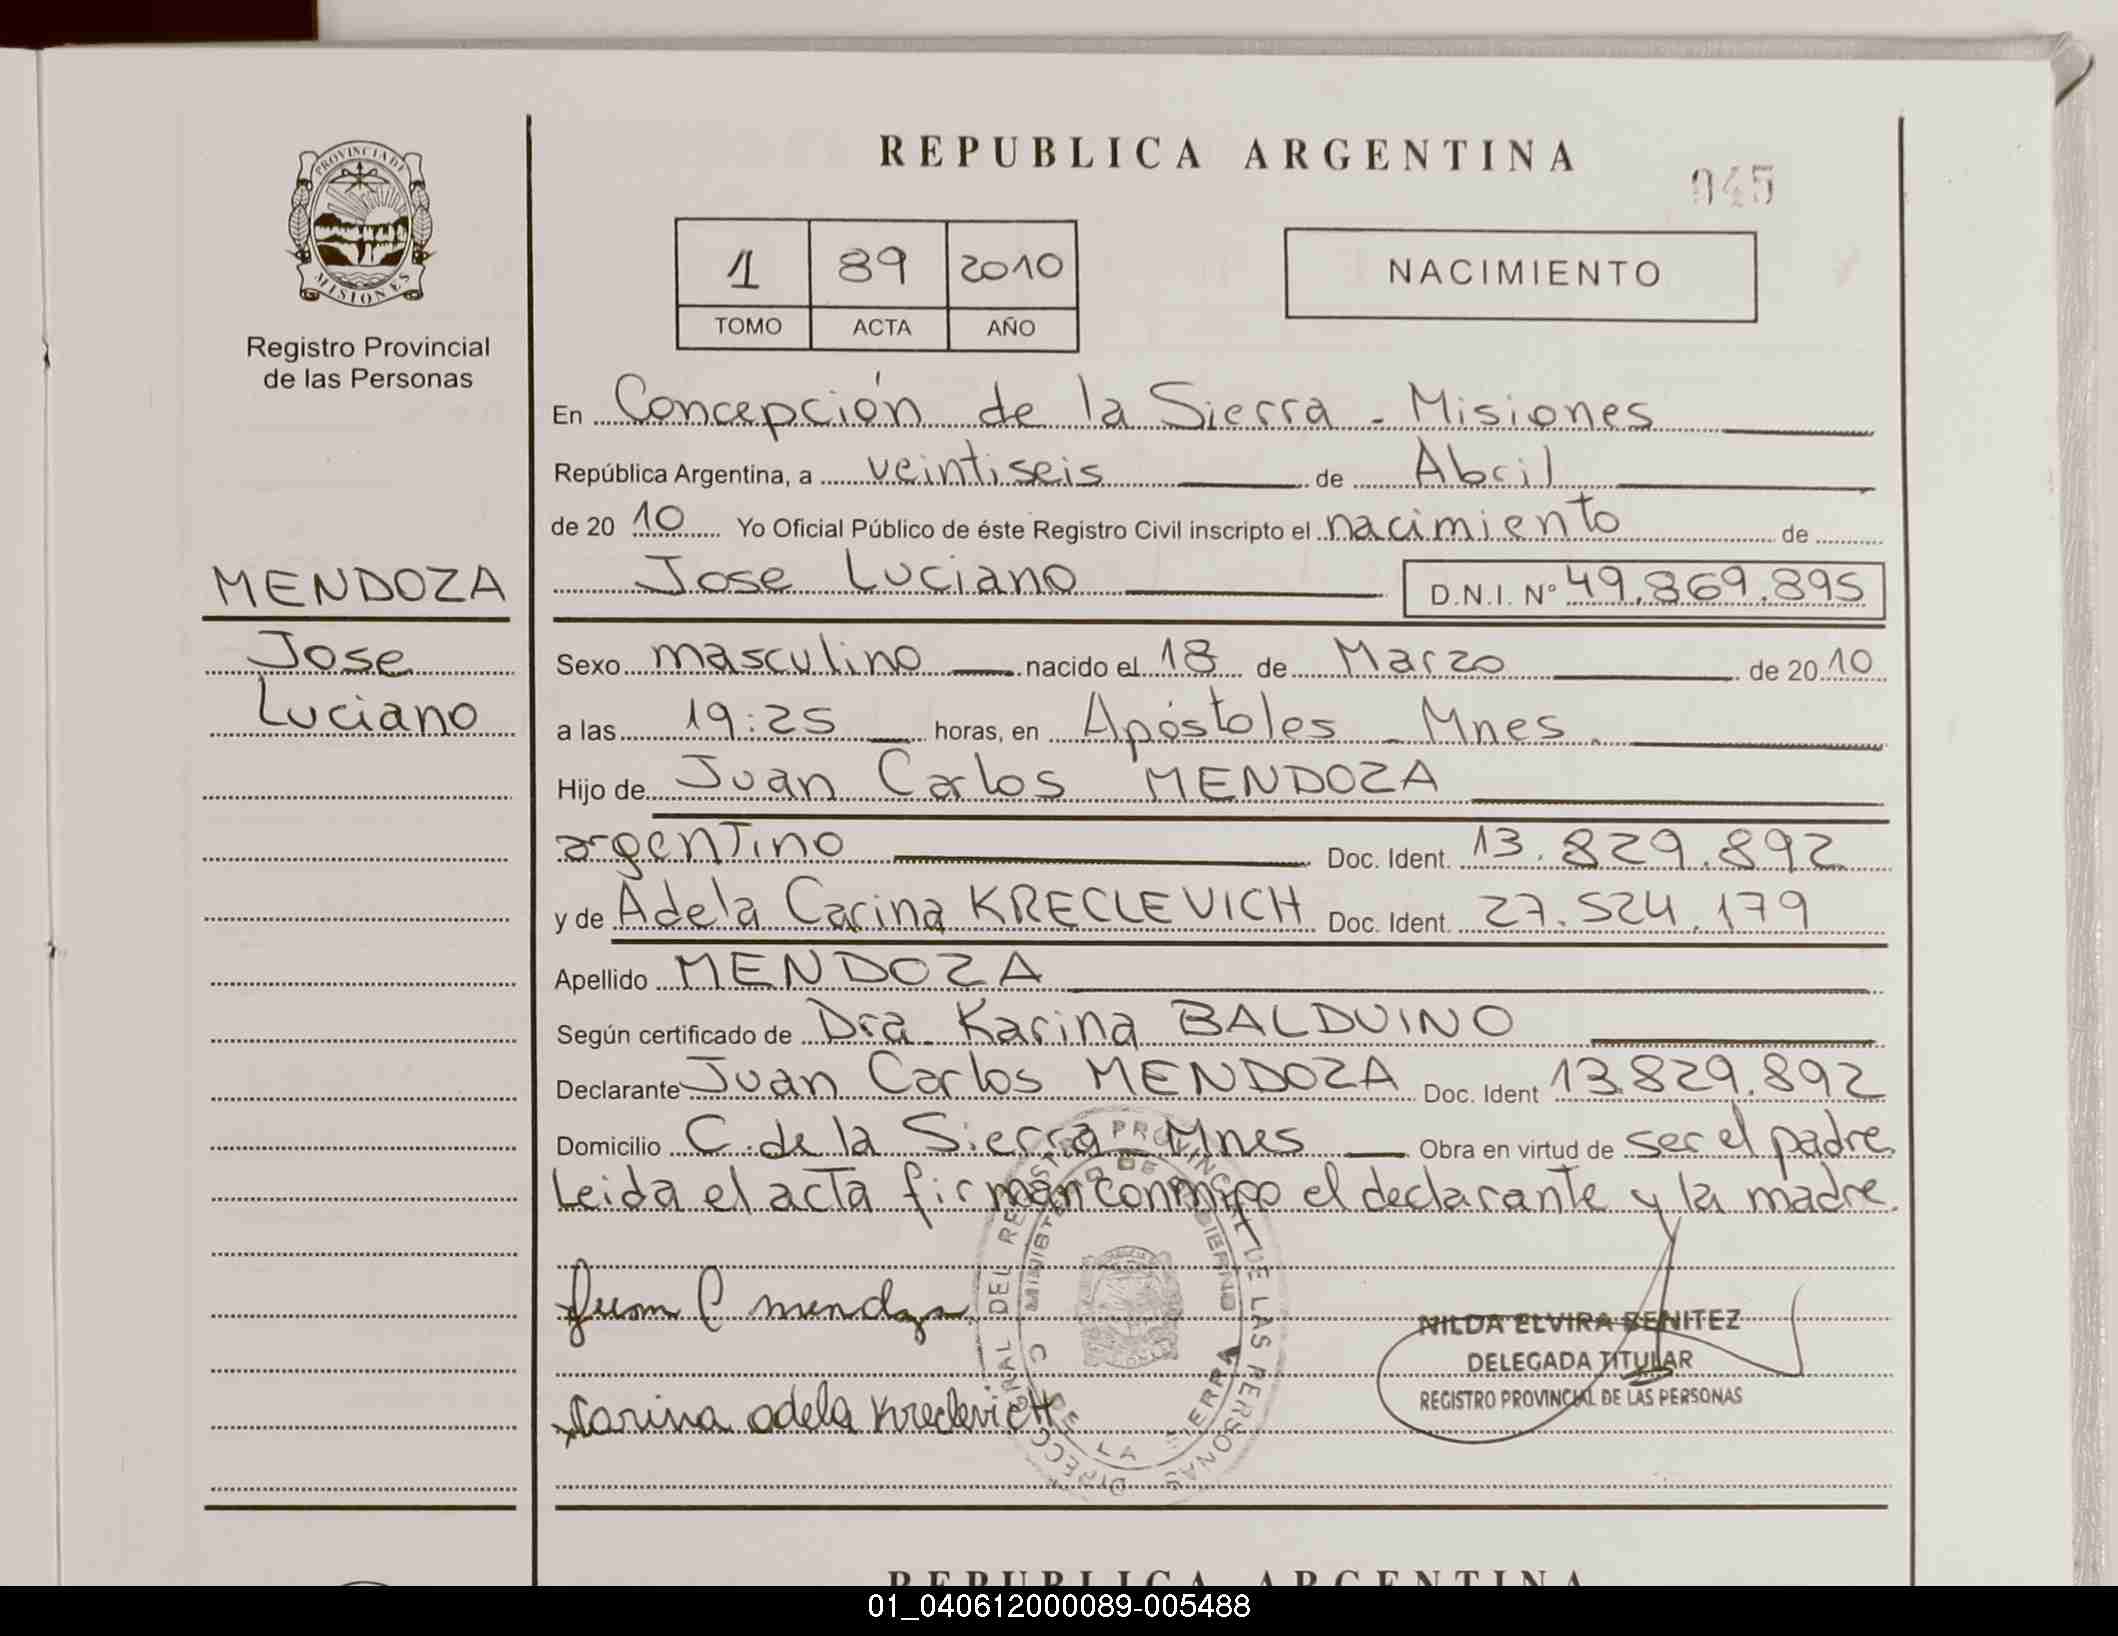 REPUBLICA ARGENTINA
045
PROVINCIA DE
MISIONES
Registro Provincial
de las Personas
1 89 2010
TOMO ACTA AÑO
NACIMIENTO
En Concepción de la Sierra - Misiones
República Argentina, a veintiseis de Abril
de 2010 Yo Oficial Público de éste Registro Civil inscripto el nacimiento de
MENDOZA
Jose Luciano D.N.I. N° 49.869.895
Jose
Sexo masculino nacido el 18 de Marzo de 2010
Luciano
a las 19:25 horas, en Apóstoles - Mnes.
Hijo de Juan Carlos MENDOZA
argentino Doc. Ident. 13.829.892
y de Adela Carina KRECLEVICH Doc. Ident. 27.524.179
Apellido MENDOZA
Según certificado de Dra. Karina BALDUINO
Declarante Juan Carlos MENDOZA Doc. Ident 13.829.892
Domicilio C. de la Sierra - Mnes Obra en virtud de ser el padre
Leida el acta firman conmigo el declarante y la madre.
Juan C mendoza
Carina adela KreclevicH
DIRECC GRAL DEL REGISTRO PROVINCIAL DE LAS PERSONAS
MINISTERIO DE GOBIERNO
C DE LA SIERRA
NILDA ELVIRA BENITEZ
DELEGADA TITULAR
REGISTRO PROVINCIAL DE LAS PERSONAS
REPUBLICA ARGENTINA
01_040612000089-005488